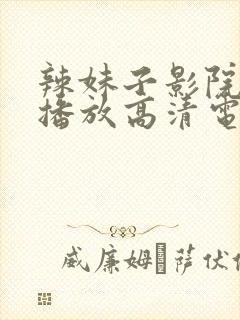 辣妹子影院
播放高清電
威廉姆 萨伏